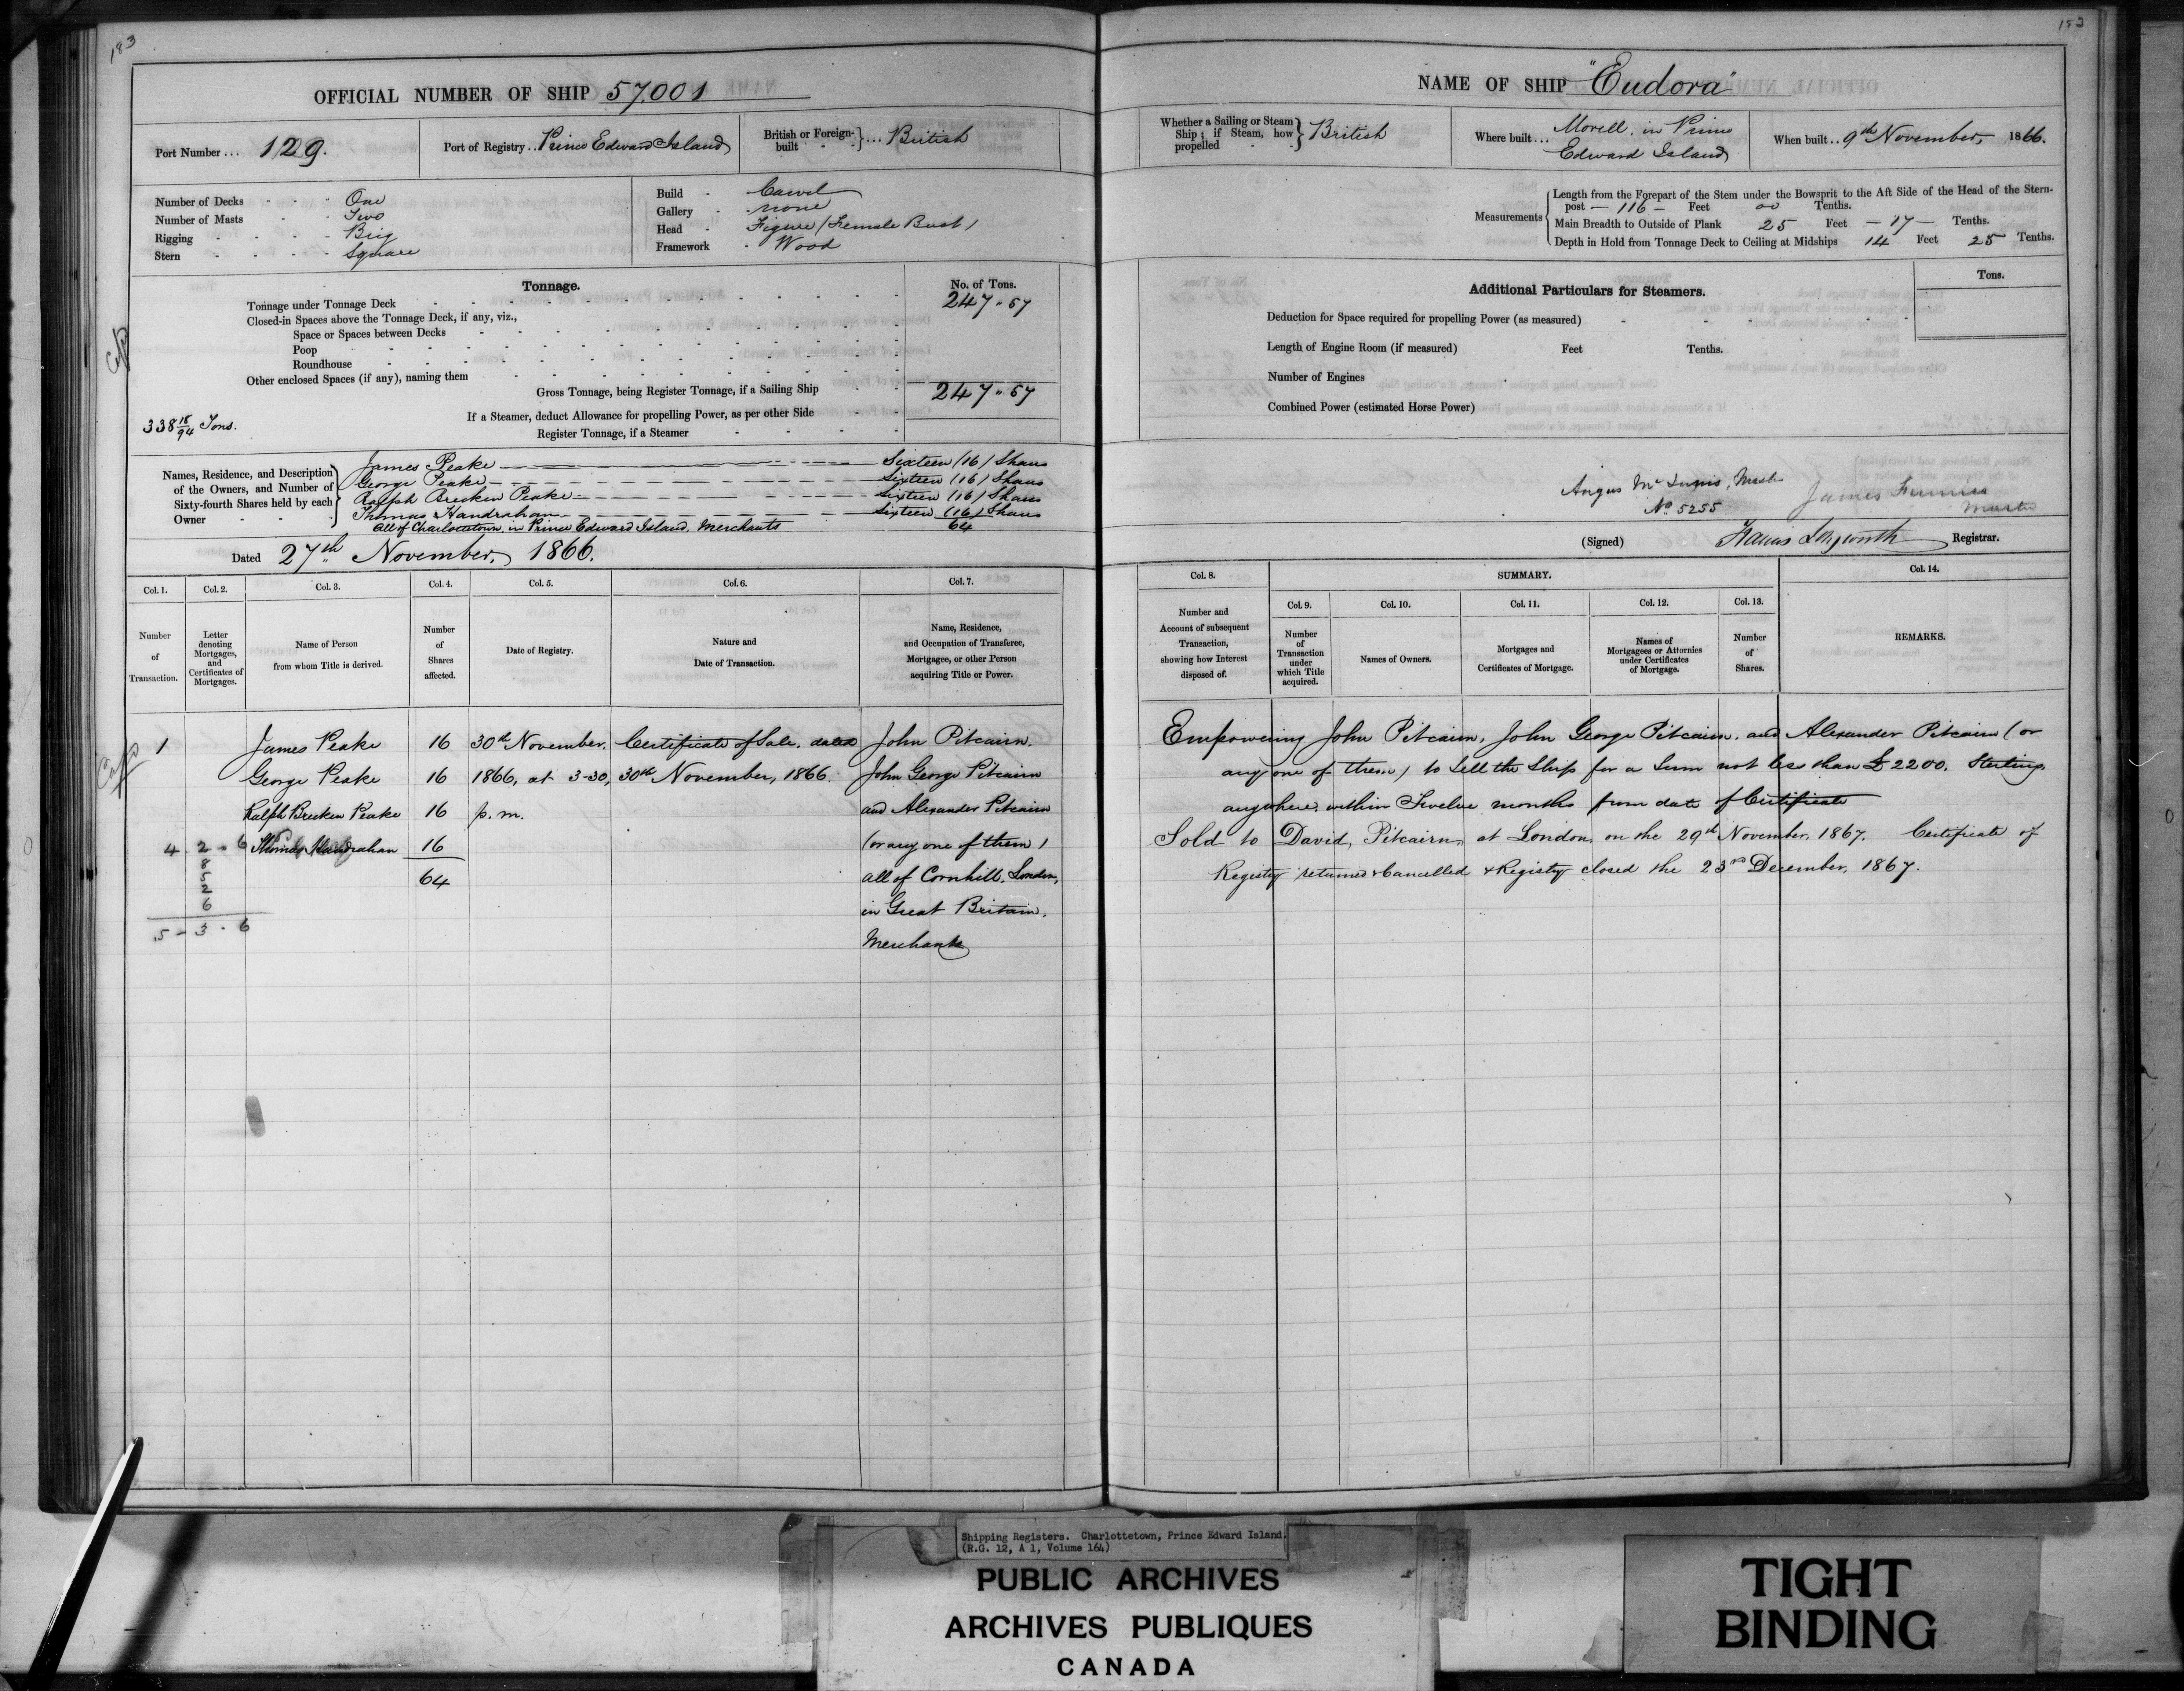 183
OFFICIAL NUMBER OF SHIP 57,001
Port Number ... 129.
Port of Registry .. Prince Edward Island
British or Foreign-built ... British
Number of Decks - One
Number of Masts - Two
Rigging - Brig
Stern - Square
Build - Carvel
Gallery - none
Head - Figure (Female Bust)
Framework - Wood
Tonnage.
No. of Tons.
Tonnage under Tonnage Deck 247 " 57
Closed-in Spaces above the Tonnage Deck, if any, viz.,
Space or Spaces between Decks
Poop
Roundhouse
Other enclosed Spaces (if any), naming them
Gross Tonnage, being Register Tonnage, if a Sailing Ship 247 " 57
If a Steamer, deduct Allowance for propelling Power, as per other Side
338 18/94 Tons.
Register Tonnage, if a Steamer
Names, Residence, and Description of the Owners, and Number of Sixty-fourth Shares held by each Owner
James Peake Sixteen (16) Shares
George Peake Sixteen (16) Shares
Ralph Brecken Peake Sixteen (16) Shares
Thomas Handrahan Sixteen (16) Shares
All of Charlottetown, in Prince Edward Island, Merchants 64
Dated 27th November, 1866.
Col. 1. Col. 2. Col. 3. Col. 4. Col. 5. Col. 6. Col. 7.
Number of Transaction.
Letter denoting Mortgages, and Certificates of Mortgages.
Name of Person from whom Title is derived.
Number of Shares affected.
Date of Registry.
Nature and Date of Transaction.
Name, Residence, and Occupation of Transferee, Mortgagee, or other Person acquiring Title or Power.
1 James Peake 16 30th November, Certificate of Sale, dated John Pitcairn,
George Peake 16 1866, at 3-30, 30th November, 1866. John George Pitcairn
Ralph Brecken Peake 16 p.m. and Alexander Pitcairn
4 2 - 6 Thomas Handrahan 16 (or any one of them)
64 all of Cornhill, London,
in Great Britain,
5 - 3 - 6
Merchants
183
NAME OF SHIP "Eudora"
Whether a Sailing or Steam Ship; if Steam, how propelled British
Where built ... Morell, in Prince Edward Island
When built .. 9th November, 1866.
Measurements
Length from the Forepart of the Stem under the Bowsprit to the Aft Side of the Head of the Stern-
post - 116 - Feet 00 Tenths.
Main Breadth to Outside of Plank 25 Feet - 17 - Tenths.
Depth in Hold from Tonnage Deck to Ceiling at Midships 14 Feet 25 Tenths.
Additional Particulars for Steamers.
Tons.
Deduction for Space required for propelling Power (as measured)
Length of Engine Room (if measured) Feet Tenths.
Number of Engines
Combined Power (estimated Horse Power)
Angus Mc
No 5255
James
Master
(Signed) Francis Longworth Registrar.
Col. 8. SUMMARY. Col. 14.
Col. 9. Col. 10. Col. 11. Col. 12. Col. 13.
Number and Account of subsequent Transaction, showing how Interest disposed of.
Number of Transaction under which Title acquired.
Names of Owners.
Mortgages and Certificates of Mortgage.
Names of Mortgagees or Attornies under Certificates of Mortgage.
Number of Shares.
REMARKS.
Empowering John Pitcairn, John George Pitcairn, and Alexander Pitcairn (or
any one of them) to Sell the Ship for a Sum not less than £2200. Sterling,
anywhere, within Twelve months from date of Certificate
Sold to David Pitcairn, at London, on the 29th November, 1867. Certificate of
Registry returned & Cancelled & Registry closed the 23rd December, 1867.
Shipping Registers. Charlottetown, Prince Edward Island.
(R.G. 12, A 1, Volume 164)
PUBLIC ARCHIVES
ARCHIVES PUBLIQUES
CANADA
TIGHT
BINDING